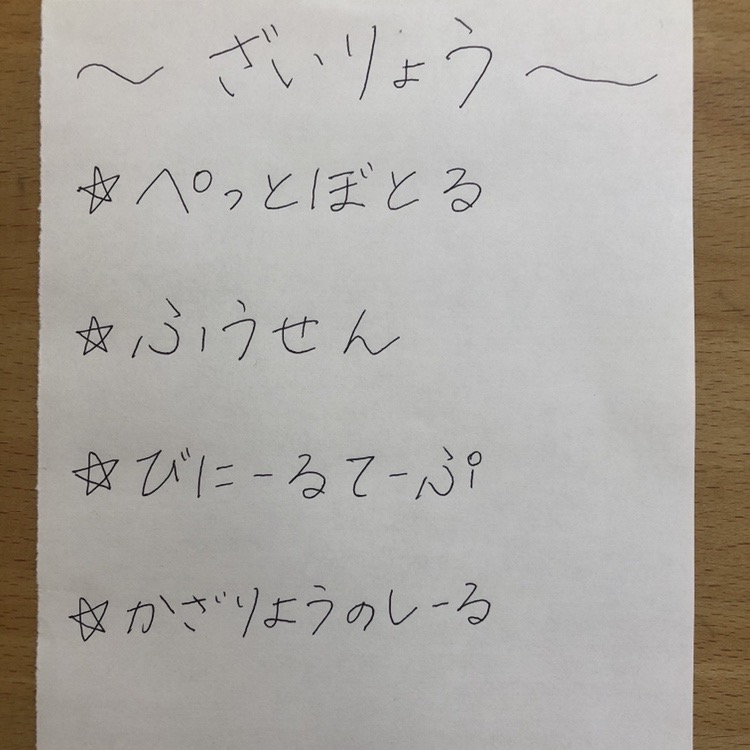 ～ ざいりょう ～
☆ ぺっとぼとる
☆ ふうせん
☆ びにーるてーぷ
☆ かざりようのしーる